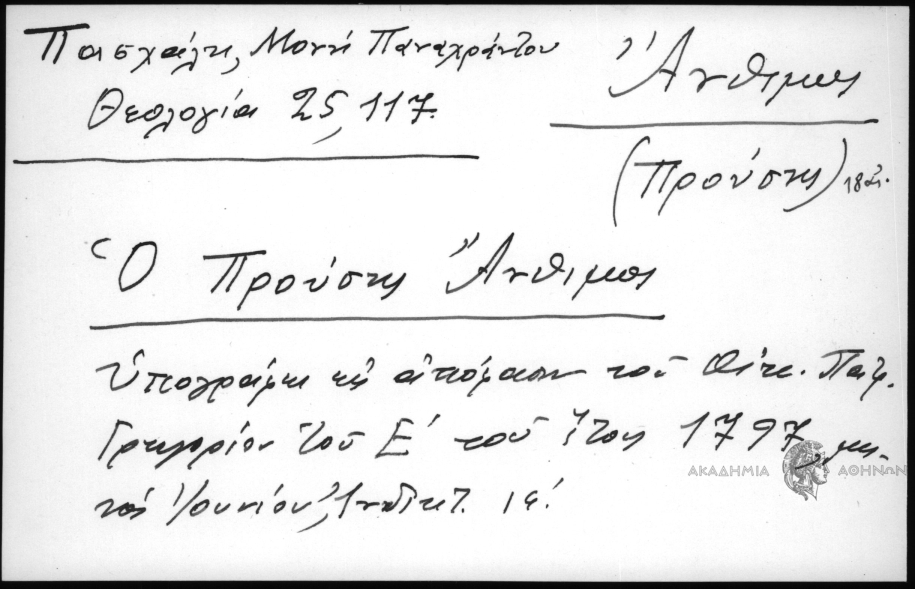 Πασχάλη, Μονή Παναχράντου
Θεολογία 25, 117.
Ἄνθιμος
(Προύσης) 18
Ὁ Προύσης Ἄνθιμος
Ὑπογράφει τήν ἀπόφασιν τοῦ Οἰκ. Πατρ.
Γρηγορίου τοῦ Ε΄ τοῦ ἔτους 1797, μη-
νός Ἰουνίου, Ἰνδικτ. ιέ.
ΑΚΑΔΗΜΙΑ ΑΘΗΝΩΝ